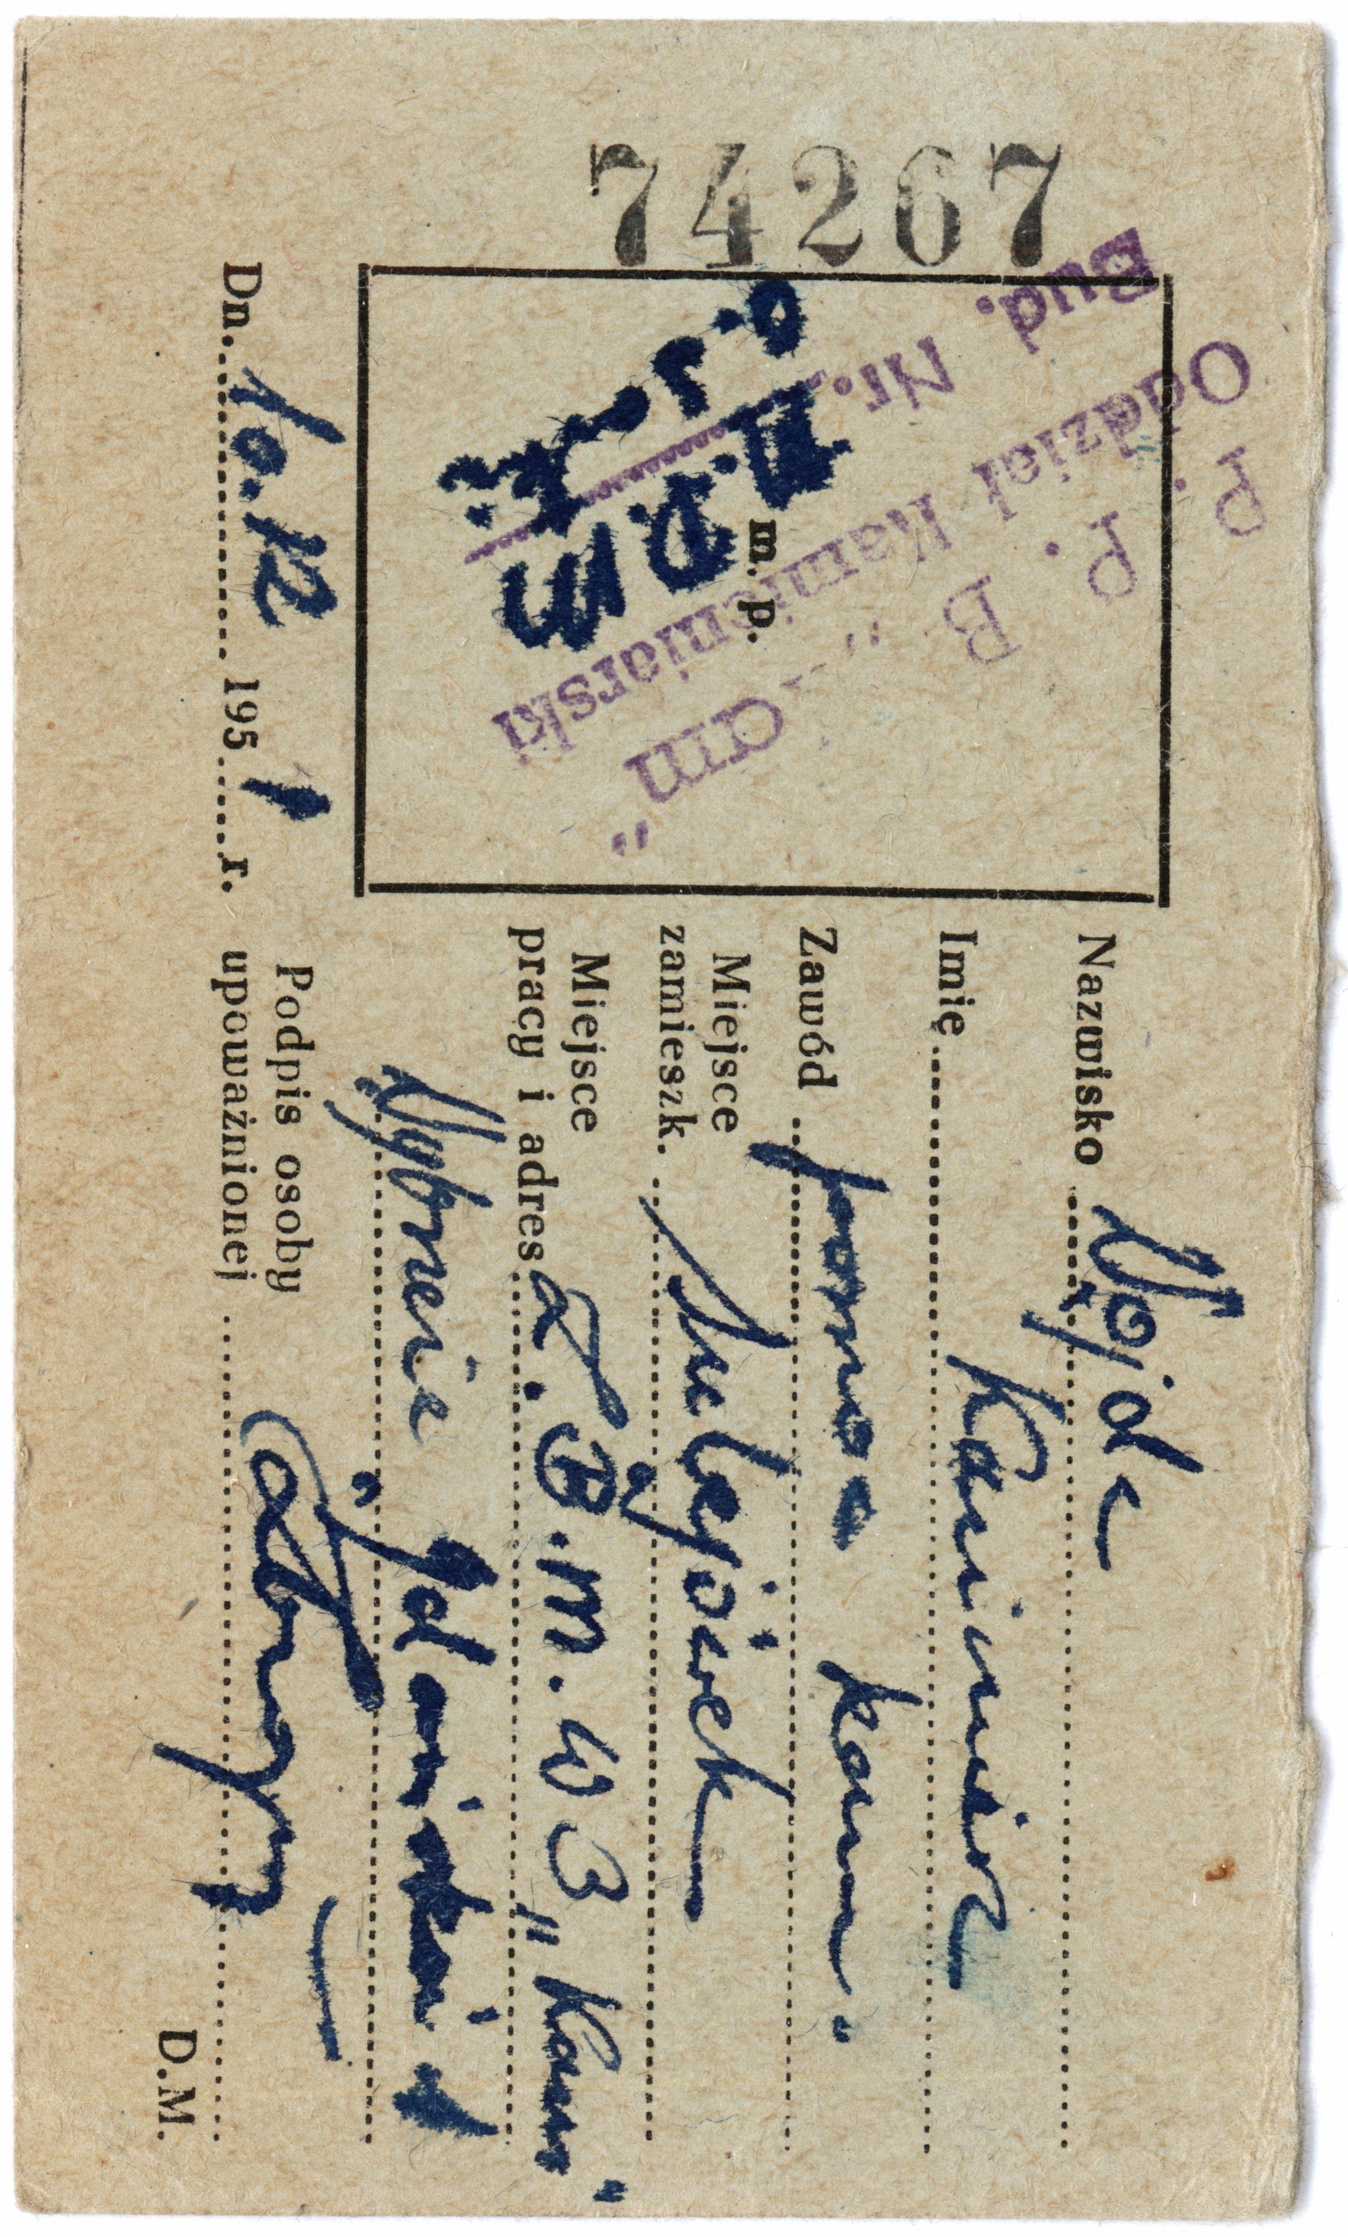 74267
P. P. B. "Kam"
Oddział Kamieniarski
Bud. Nr.
M.D.M
m. p.
Nazwisko Wojda
Imię Kazimierz
Zawód pomoc kam.
Miejsce
zamieszk. Sulejówek
Miejsce
pracy i adres Z.B.M.W 3 "Kam"
Wybrzeże Gdańskie 1
Dn. 10.12 1951 r.
Podpis osoby
upoważnionej
D.M.